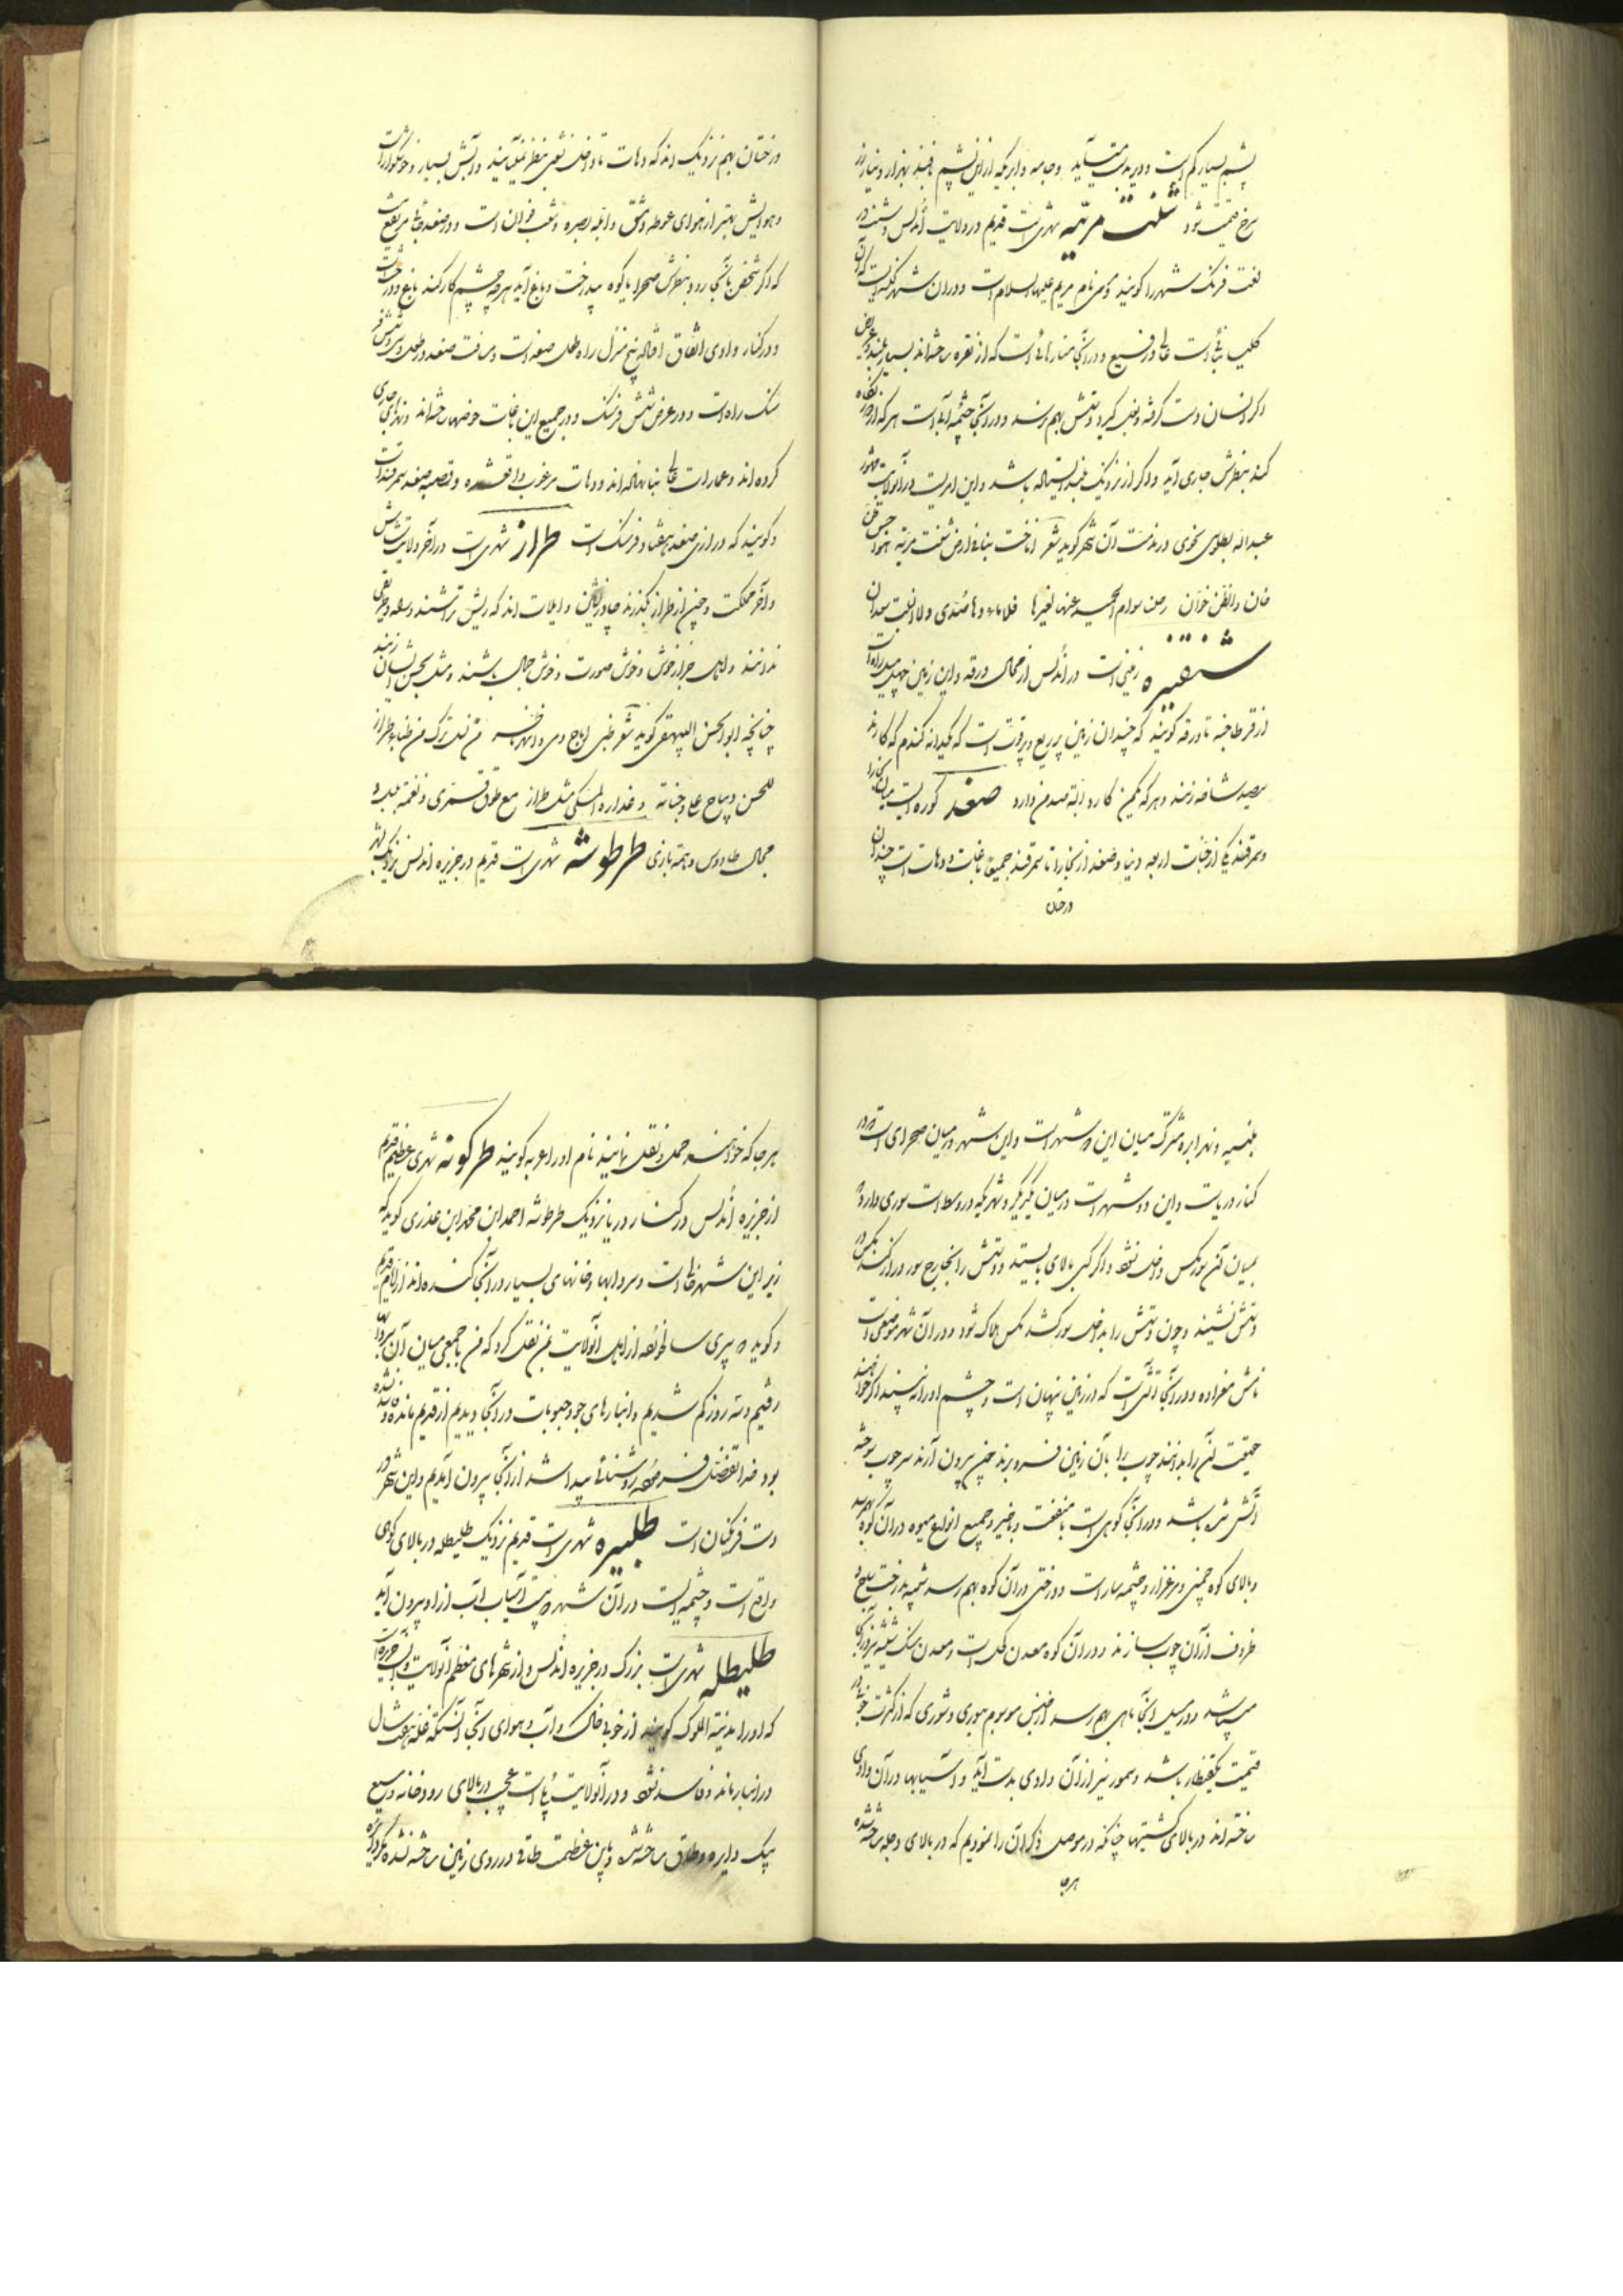 پشم بسیار کم است و دیر بدست می‌آید و جامه و ابریکه از این پشم بافند بهزار دینار زر
سرخ قیمت شود شنت مریه شهریست قدیم در ولایت اندلس و شنت در
لغت فرنگ شهر را گویند و مریه نام مریم علیها السلام است و در آن شهر کلیسائیست که آن
کلیسا بنائی است عالی و رفیع و در آنجا منارهائی است که از نقره ساخته‌اند بسیار بلند و عریض
اگر انسان دست گرفته بغل گیرد دستش بهم نرسد و در آنجا چشمه آبی است هر که از دور نگاه
کند بنظرش جاری آید و اگر از نزدیک باشد و این امریست در آنولایت مشهور
عبداله بطلیوسی نحوی در مذمت آن شهر گوید شعر اناخت بنا فی ارض شنت مریه
خان والظن خوان رحلنا سوام الحمد عنها لغیرها فلا ماءها صدی ولا النبت سعدان
شنقنیره زمینی است در اندلس از محال ورقه و این زمین چهل میل راه است
از قرطاجنه تا ورقه گویند که چندان زمین پر ریع و پر قوت است که یکدانه گندم که کارند
سیصد شاخه زند و هر که یکمن کارد البته صد من دارد صغد کوره ایست میان بخارا
و سمرقند یکی از جنات اربعه دنیا و صغد از بخارا تا سمرقند جمیعا باغات و دهات است چندان
درختان
درختان بهم نزدیک‌اند که دهات تا داخل نشوی بنظر نمی‌آیند و آبش بسیار و خوشگوار است
و هوایش بهتر از هوای غوطه دمشق و ابله بصره و شعب بوان است و در صغد جائی مرتفع نیست
که اگر شخص بآنجا رود و بنظرش صحرا یا کوه بیدرخت و باغ آید هر چه چشم کار کند باغ و درخت است
و در کنار وادی اتفاق افتاده پنج منزل راه طول صغد است و مسافت صغد در طول سی و شش فر
سنگ راه است و در عرض شش فرسنگ و در جمیع این باغات حوضها ساخته‌اند و نهرهای جاری
کرده‌اند و عمارات عالی بنا نهاده‌اند و دهات مرغوب واقع شده و قصبه صغد سمرقند است
و گویند که درازی صغد هفتاد فرسنگ است طراز شهریست در آخر ولایت شاش
و آخر مملکت و چون از طراز بگذرند و ایلات‌اند که ریش تراشند و
ندانند و اهل طراز خوش و خوش صورت و خوش جمال باشند و مثل بحسن ایشان زنند
چنانچه ابوالحسن البیهقی گوید شعر ظبی اباح دمی و اسهر ناظری من نسل ترک من ظباء طراز
للحسن دیباج علی وجناته و عذاره المسکی مثل طراز مع طوق قمری و نغمة بلبل و
جمال طاوس و همة بازی طرطوشه شهریست قدیم در جزیره اندلس نزدیک بشهر
بلنسیه و نهر ابره مشترک میان این دو شهر است و این شهر در میان صحرای است در
کنار دریاست و این دو شهر است در میان یکدیگر و شهریکه در وسط است سوری دارد که
بمیان آن سور مگس داخل نشود و اگر کسی بالای سور بایستد و دستش را بخارج سور دراز کند مگس در
دستش نشیند و چون دستش را بداخل سور کشد مگس هلاک شود و در آن شهر موضعی است
نامش مغراده و در آنجا آتشیست که در زمین پنهان است و چشم او را نه بیند اگر خواهند
حقیقت آن را بدانند چوب را بآن زمین فرو برند چون بیرون آرند سر چوب سوخته
و آتش شده باشد و در آنجا کوهی است با منفعت و با خیر و جمیع انواع میوه در آن کوه بهم رسد
و بالای کوه چمنی و مرغزار و چشمه سار است و درختی در آن کوه بهم رسد شبیه بدرخت
ظروف از آن چوب سازند و در آن کوه معدن کحل است و معدن سنگ شیشه نیز در آنجا
میباشد و در سیل آنجا ماهی بهم رسد از جنس موسوم بوری و شوری که از کثرت خوبی در
قیمت یکقنطار باشد و سمور نیز از آن وادی بدست آید و آسیابها در آن وادی
ساخته‌اند در بالای کشتیها چنانکه در موصل ذکر آن را نمودیم که در بالای دجله ساخته شده
هرجا
هر جا که خواهند حمل و نقل نمایند نام او را عربه گویند طرکونه شهری عظیم قدیم
از جزیره اندلس در کنار دریا نزدیک طرطوشه احمد ابن محمد ابن عذری گوید که
زیر این شهر خالی است و سردابها و خانهای بسیار در آنجا کنده‌اند از ایام قدیم
و گوید که پیری سالخورده از اهل آنولایت بمن نقل کرد که من با جمعی میان آن سردابها
رفتیم و سه روز گم شدیم و انبارهای جو و حبوبات در آنجا دیدیم از قدیم مانده و فاسد شده
بود خدا تفضل فرموده روشنائی پیدا شد از آنجا بیرون آمدیم و این شهر در
دست فرنگیان است طلبیره شهریست قدیم نزدیک طلیطله در بالای کوهی
واقع است و چشمه ایست در آن شهر که بیست آسیاب آب از او بیرون آید
طلیطله شهریست بزرگ در جزیره اندلس و از شهرهای معظم آنولایت
که او را مدینة الملوک گویند از خوبی خاک و آب و هوای آنجا آنستکه غله هفتاد سال
در انبار بماند و فاسد نشود و در آنولایت پلی است عجیب در بالای رودخانه وسیع
بیک دایره و طاق ساخته شده و باین عظمت طاقی در روی زمین ساخته نشده